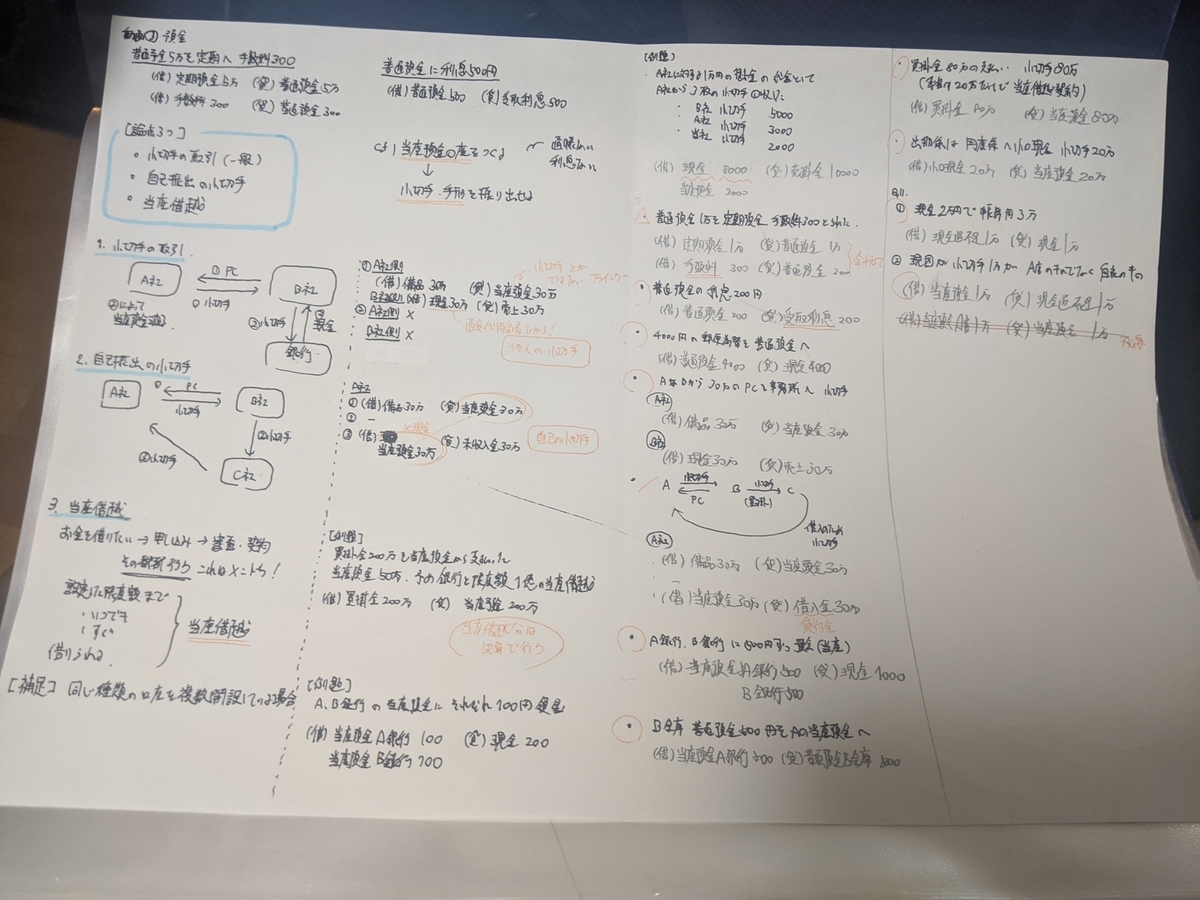 動画② 預金
普通預金5万を定期へ 手数料300
(借) 定期預金5万 (貸) 普通預金5万
(借) 手数料 300 (貸) 普通預金 300
普通預金に利息500円
(借) 普通預金 500 (貸) 受取利息 500
[論点3つ]
• 小切手の取引 (一般)
• 自己振出の小切手
• 当座借越
当座預金口座をつくる
通帳ない
利息ない
↓
小切手・手形を振り出せる
1. 小切手の取引
A社
① PC
① 小切手
B社
②小切手
現金
銀行
によって
当座預金減少
① A社側
(借) 備品 30万 (貸) 当座預金30万
B社側 (借) 現金30万 (貸) 売上30万
② A社側 ×
B社側 ×
他人の小切手
2. 自己振出の小切手
A社
①
PC
小切手
B社
②小切手
C社
③小切手
A社
① (借) 備品30万 (貸) 当座預金30万
② ―
③ (借) 当座預金30万 (貸) 未収入金30万
×現金
自己の小切手
3. 当座借越
お金を借りたい → 申し込み → 審査・契約
その都度行う これは×ントウ!
設定した限度額まで
・いつでも
・すぐ
借りられる
当座借越
[例題]
買掛金200万を当座預金から支払った
当座預金50万. その銀行と限度額1億の当座借越
(借) 買掛金200万 (貸) 当座預金 200万
当座借越分は
決算で行う
[補足] 同じ種類の口座を複数開設している場合
[例題]
A、B銀行の当座預金にそれぞれ100円預金
(借) 当座預金A銀行 100 (貸) 現金 200
当座預金B銀行 100
[例題]
・A社に対する1万円の売掛金の代金として
A社から3枚の小切手の収入
・B社 小切手 5000
・A社 小切手 3000
・当社 小切手 2000
(借) 現金 8000 (貸) 売掛金 10000
当座預金 2000
・普通預金1万を定期預金 手数料300とられた
(借) 定期預金 1万 (貸) 普通預金 1万
(借) 手数料 300 (貸) 普通預金 300
・普通預金の利息200円
(借) 普通預金 200 (貸) 受取利息 200
・4000円の郵便為替を普通預金へ
(借) 普通預金4000 (貸) 現金4000
・AはBから30万のPCを事務所へ 小切手
A社
(借) 備品30万 (貸) 当座預金30万
B社
(借) 現金30万 (貸) 売上30万
A
小切手
PC
B
小切手
C
小切手
A社
(借) 備品30万 (貸) 当座預金30万
―
(借) 当座預金30万 (貸) 借入金30万
・A銀行、B銀行に500円ずつ預入 (当座)
(借) 当座預金A銀行 500 (貸) 現金 1000
B銀行 500
・B金庫 普通預金500円をAの当座預金へ
(借) 当座預金A銀行 500 (貸) 普通預金B金庫 500
・買掛金80万の支払い 小切手80万
(残高20万だけで当座借越契約)
(借) 買掛金 80万 (貸) 当座預金80万
・出納係は用度係へ小口現金 小切手20万
(借) 小口現金20万 (貸) 当座預金20万
① 現金2万円で帳簿用3万
(借) 現金過不足1万 (貸) 現金1万
② 原因が小切手1万がA店のそれでなく自店のもの
(借) 当座預金1万 (貸) 現金過不足1万